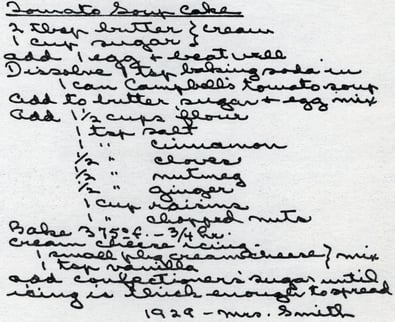 Tomato Soup Cake
2 tbsp butter } cream
1 cup sugar }
add 1 egg + beat well
Dissolve 1 tsp baking soda in
1 can Campbell's tomato soup
add to butter sugar + egg mix
add 1 1/2 cups flour
1 tsp salt
1 " cinnamon
1/2 " cloves
1/2 " nutmeg
1/2 " ginger
1 cup raisins
1 " chopped nuts
Bake 375° f. - 3/4 hr.
cream cheese icing -
1 small pkg cream cheese } mix
1 tsp vanilla }
add confectioner's sugar until
icing is thick enough to spread
1929 - Mrs. Smith